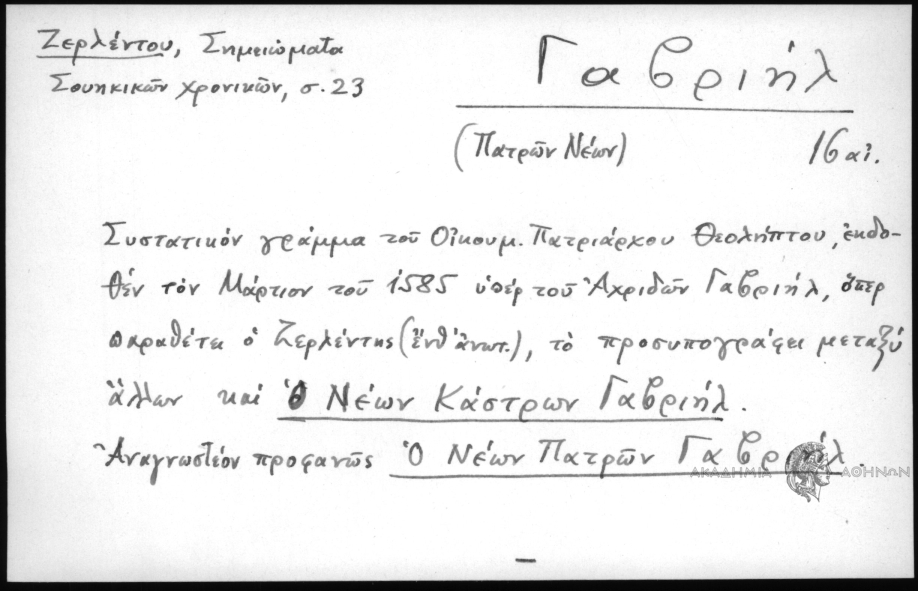 Ζερλέντου, Σημειώματα
Σουηκικῶν χρονικῶν, σ. 23
Γαβριήλ
(Πατρῶν Νέων)
16 αἰ.
Συστατικόν γράμμα τοῦ Οἰκουμ. Πατριάρχου Θεολήπτου, ἐκδο-
θέν τόν Μάρτιον τοῦ 1585 ὑπέρ τοῦ Ἀχριδῶν Γαβριήλ, ὅπερ
παραθέτει ὁ Ζερλέντης (ἔνθ' ἀνωτ.), τὸ προσυπογράφει μεταξύ
ἄλλων καί Ὁ Νέων Κάστρων Γαβριήλ.
Ἀναγνωστέον προφανῶς Ὁ Νέων Πατρῶν Γαβριήλ.
ΑΚΑΔΗΜΙΑ ΑΘΗΝΩΝ